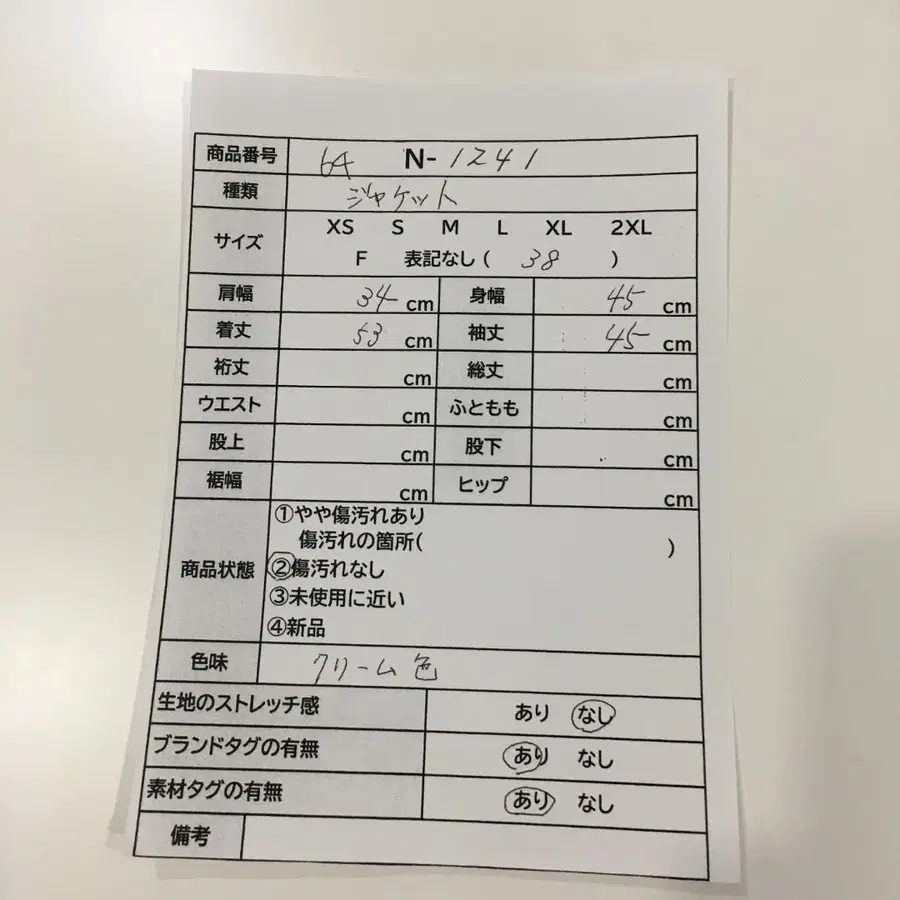 商品番号 6A N-1241
種類 ジャケット
サイズ XS S M L XL 2XL
F 表記なし ( 38 )
肩幅 34 cm 身幅 45 cm
着丈 53 cm 袖丈 45 cm
裄丈 cm 総丈 cm
ウエスト cm ふともも cm
股上 cm 股下 cm
裾幅 cm ヒップ cm
①やや傷汚れあり
傷汚れの箇所( )
商品状態 ②傷汚れなし
③未使用に近い
④新品
色味 クリーム色
生地のストレッチ感 あり なし
ブランドタグの有無 あり なし
素材タグの有無 あり なし
備考